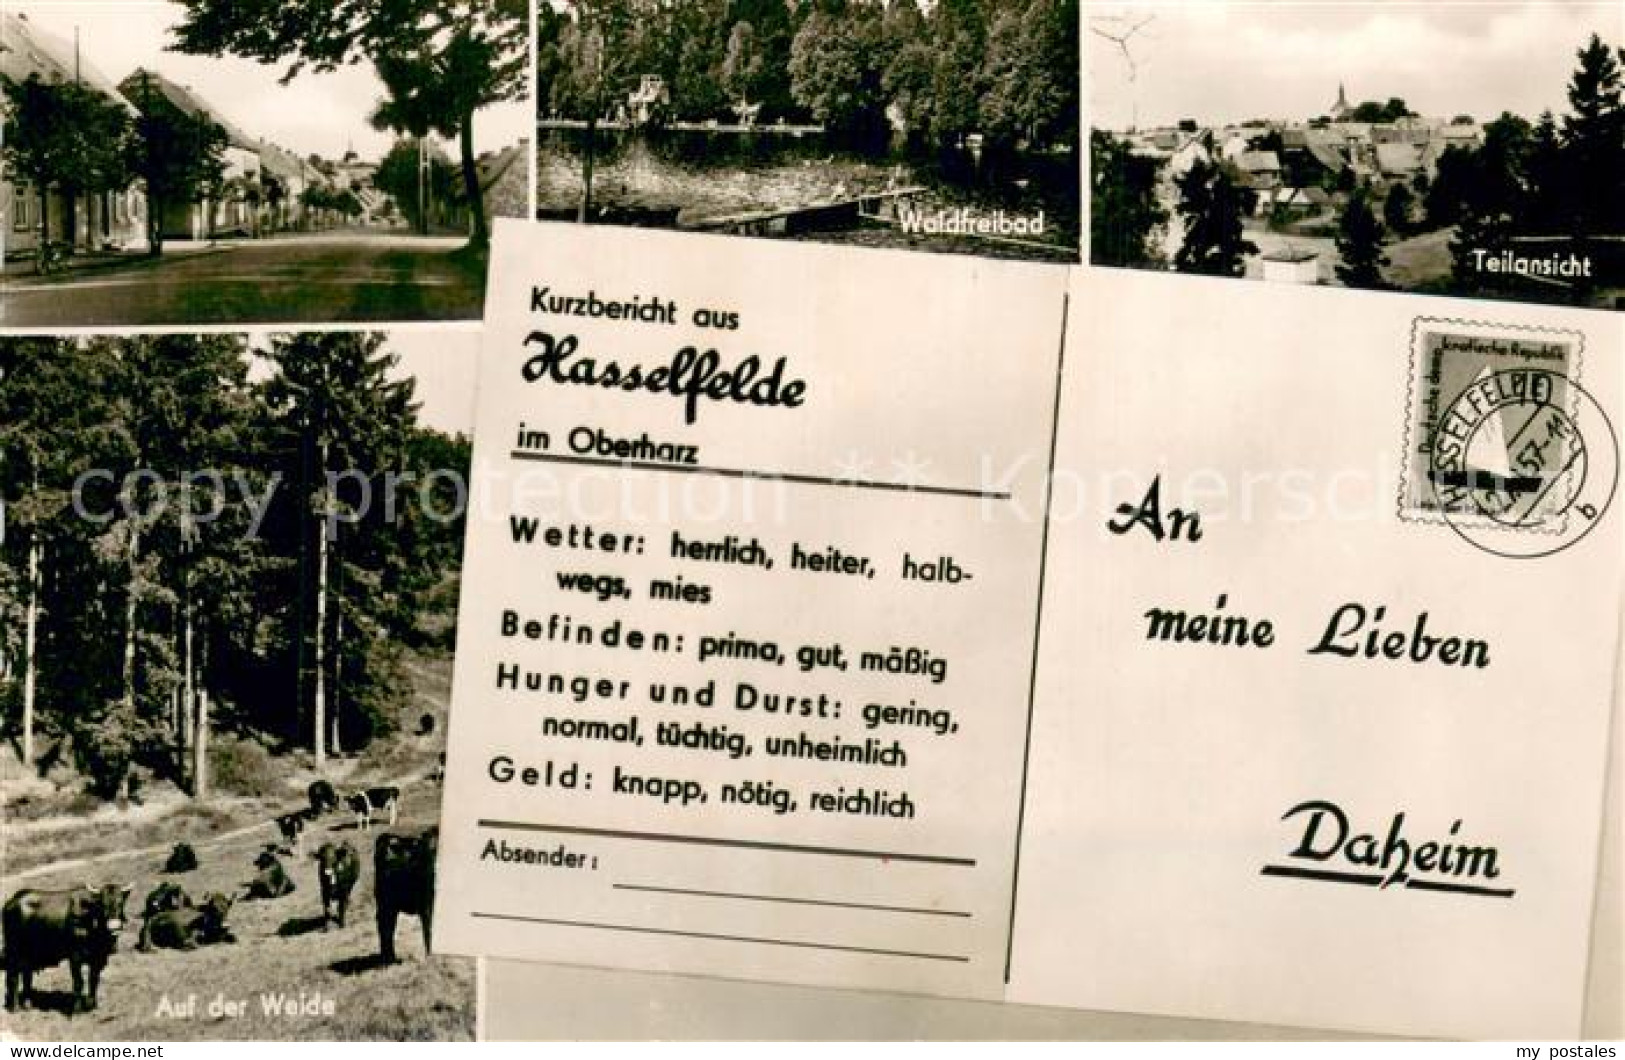 Waldfreibad
Teilansicht
Kurzbericht aus
Hasselfelde
im Oberharz
Wetter: herrlich, heiter, halb-
wegs, mies
Befinden: prima, gut, mäßig
Hunger und Durst: gering,
normal, tüchtig, unheimlich
Geld: knapp, nötig, reichlich
Absender:
kratische Republik
Deutsche demo
HASSELFELDE
57-11
b
An
meine Lieben
Daheim
Auf der Weide
copy protection ** Kopierschutz
my postales